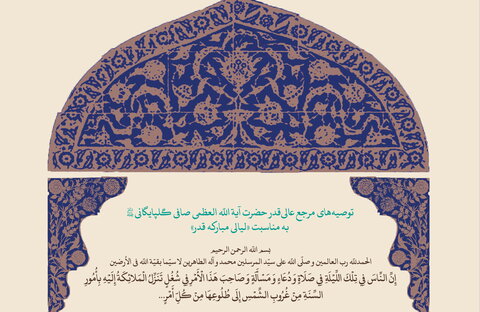 توصیه‌های مرجع عالی‌قدر حضرت آیة الله العظمی صافی گلپایگانی
به مناسبت «لیالی مبارکه قدر»
بسم الله الرحمن الرحیم
الحمدلله رب العالمین و صلّی الله علی سیّد المرسلین محمد و آله الطاهرین لا سیّما بقیّة الله فی الأرضین
إِنَّ النَّاسَ فِي تِلْكَ اللَّيْلَةِ فِي صَلَاةٍ وَ دُعَاءٍ وَ مَسْأَلَةٍ وَ صَاحِبَ هَذَا الْأَمْرِ فِي شُغْلٍ تَنَزَّلُ الْمَلَائِكَةُ إِلَيْهِ بِأُمُورِ
السَّنَةِ مِنْ غُرُوبِ الشَّمْسِ إِلَى طُلُوعِهَا مِنْ كُلِّ أَمْرٍ...